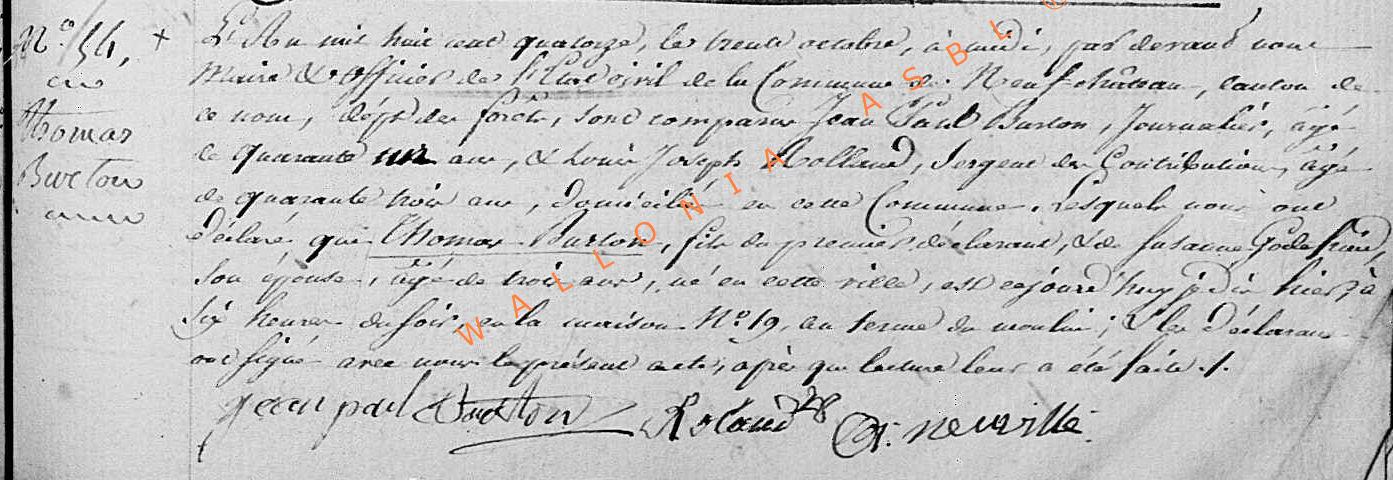 N.º 54. +
Thomas
Burton
L'An mil huit cent quatorze, le trente octobre, à midi, par devant nous
Maire & officier de l'Etat civil de la Commune de Neufchâteau, canton de
ce nom, dépt. des forêts, sont comparus Jean Paul Burton, Journalier, âgé
de quarante un ans, & Louis Joseph Rolland, Sergent des Contributions, âgé
de quarante trois ans, domiciliés en cette Commune. Lesquels nous ont
déclaré que Thomas Burton, fils du premier déclarant, & de Susanne Godefroid,
son épouse, âgé de trois ans, né en cette ville, est cejourd'huy, je dis hier, à
six heures du soir, en la maison N.º 19, au terme du moulin; & les Déclarans
ont signé avec nous le présent acte, après que lecture leur a été faite ./.
jean paul Burton Roland N. neuville.
WALLONIA ASBL ©